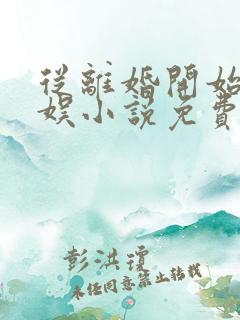 從離婚開始
娛小說免費
彭洪瓊
未經同意禁止轉載